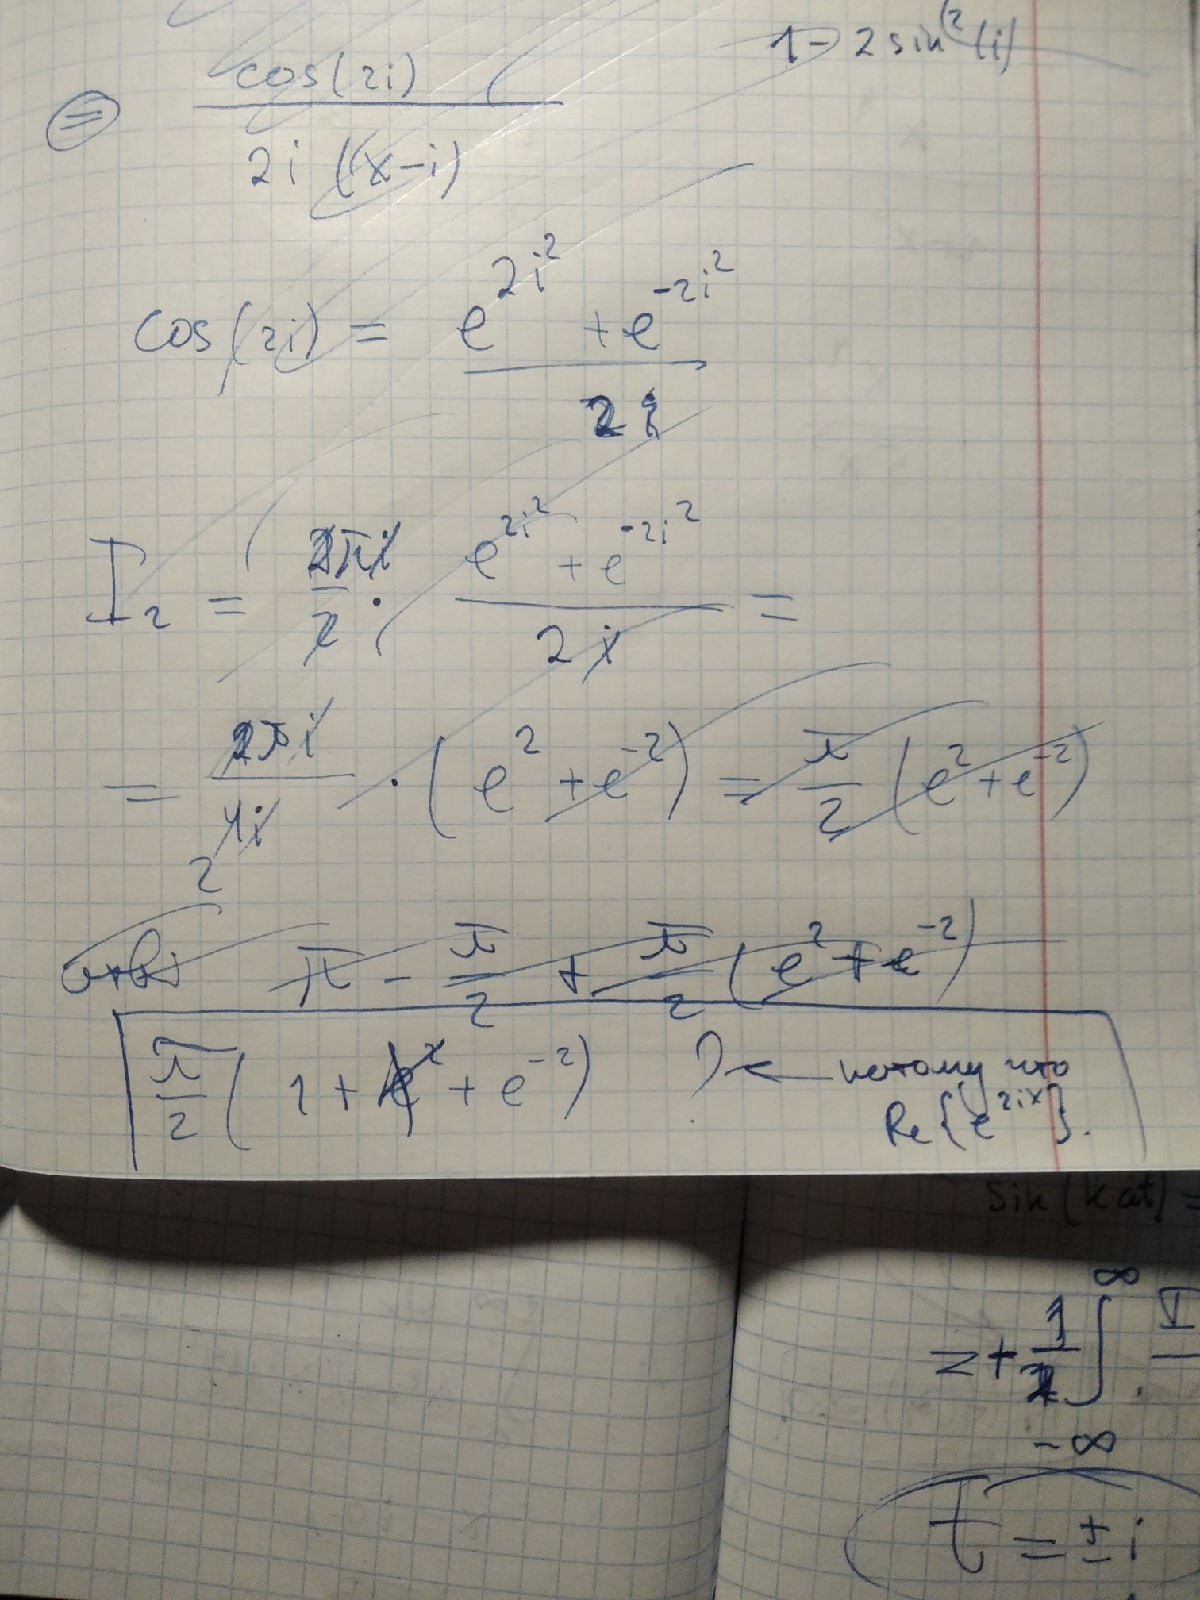 1 - 2 sin²(i)
= cos(2i) / 2i (x-i)
cos(2i) = (e^{2i²} + e^{-2i²}) / 2
I₂ = 2πi/2 · (e^{2i²} + e^{-2i²}) / 2i =
= 2πi/4i · (e² + e^{-2}) = π/2 (e² + e^{-2})
2
π - π/2 + π/2 (e² + e^{-2})
π/2 (1 + e² + e^{-2}) ? ← потому что
Re{e^{2ix}}.
sin(k at) =
z + 1/2 ∫_{-∞}^{∞}
τ = ± i